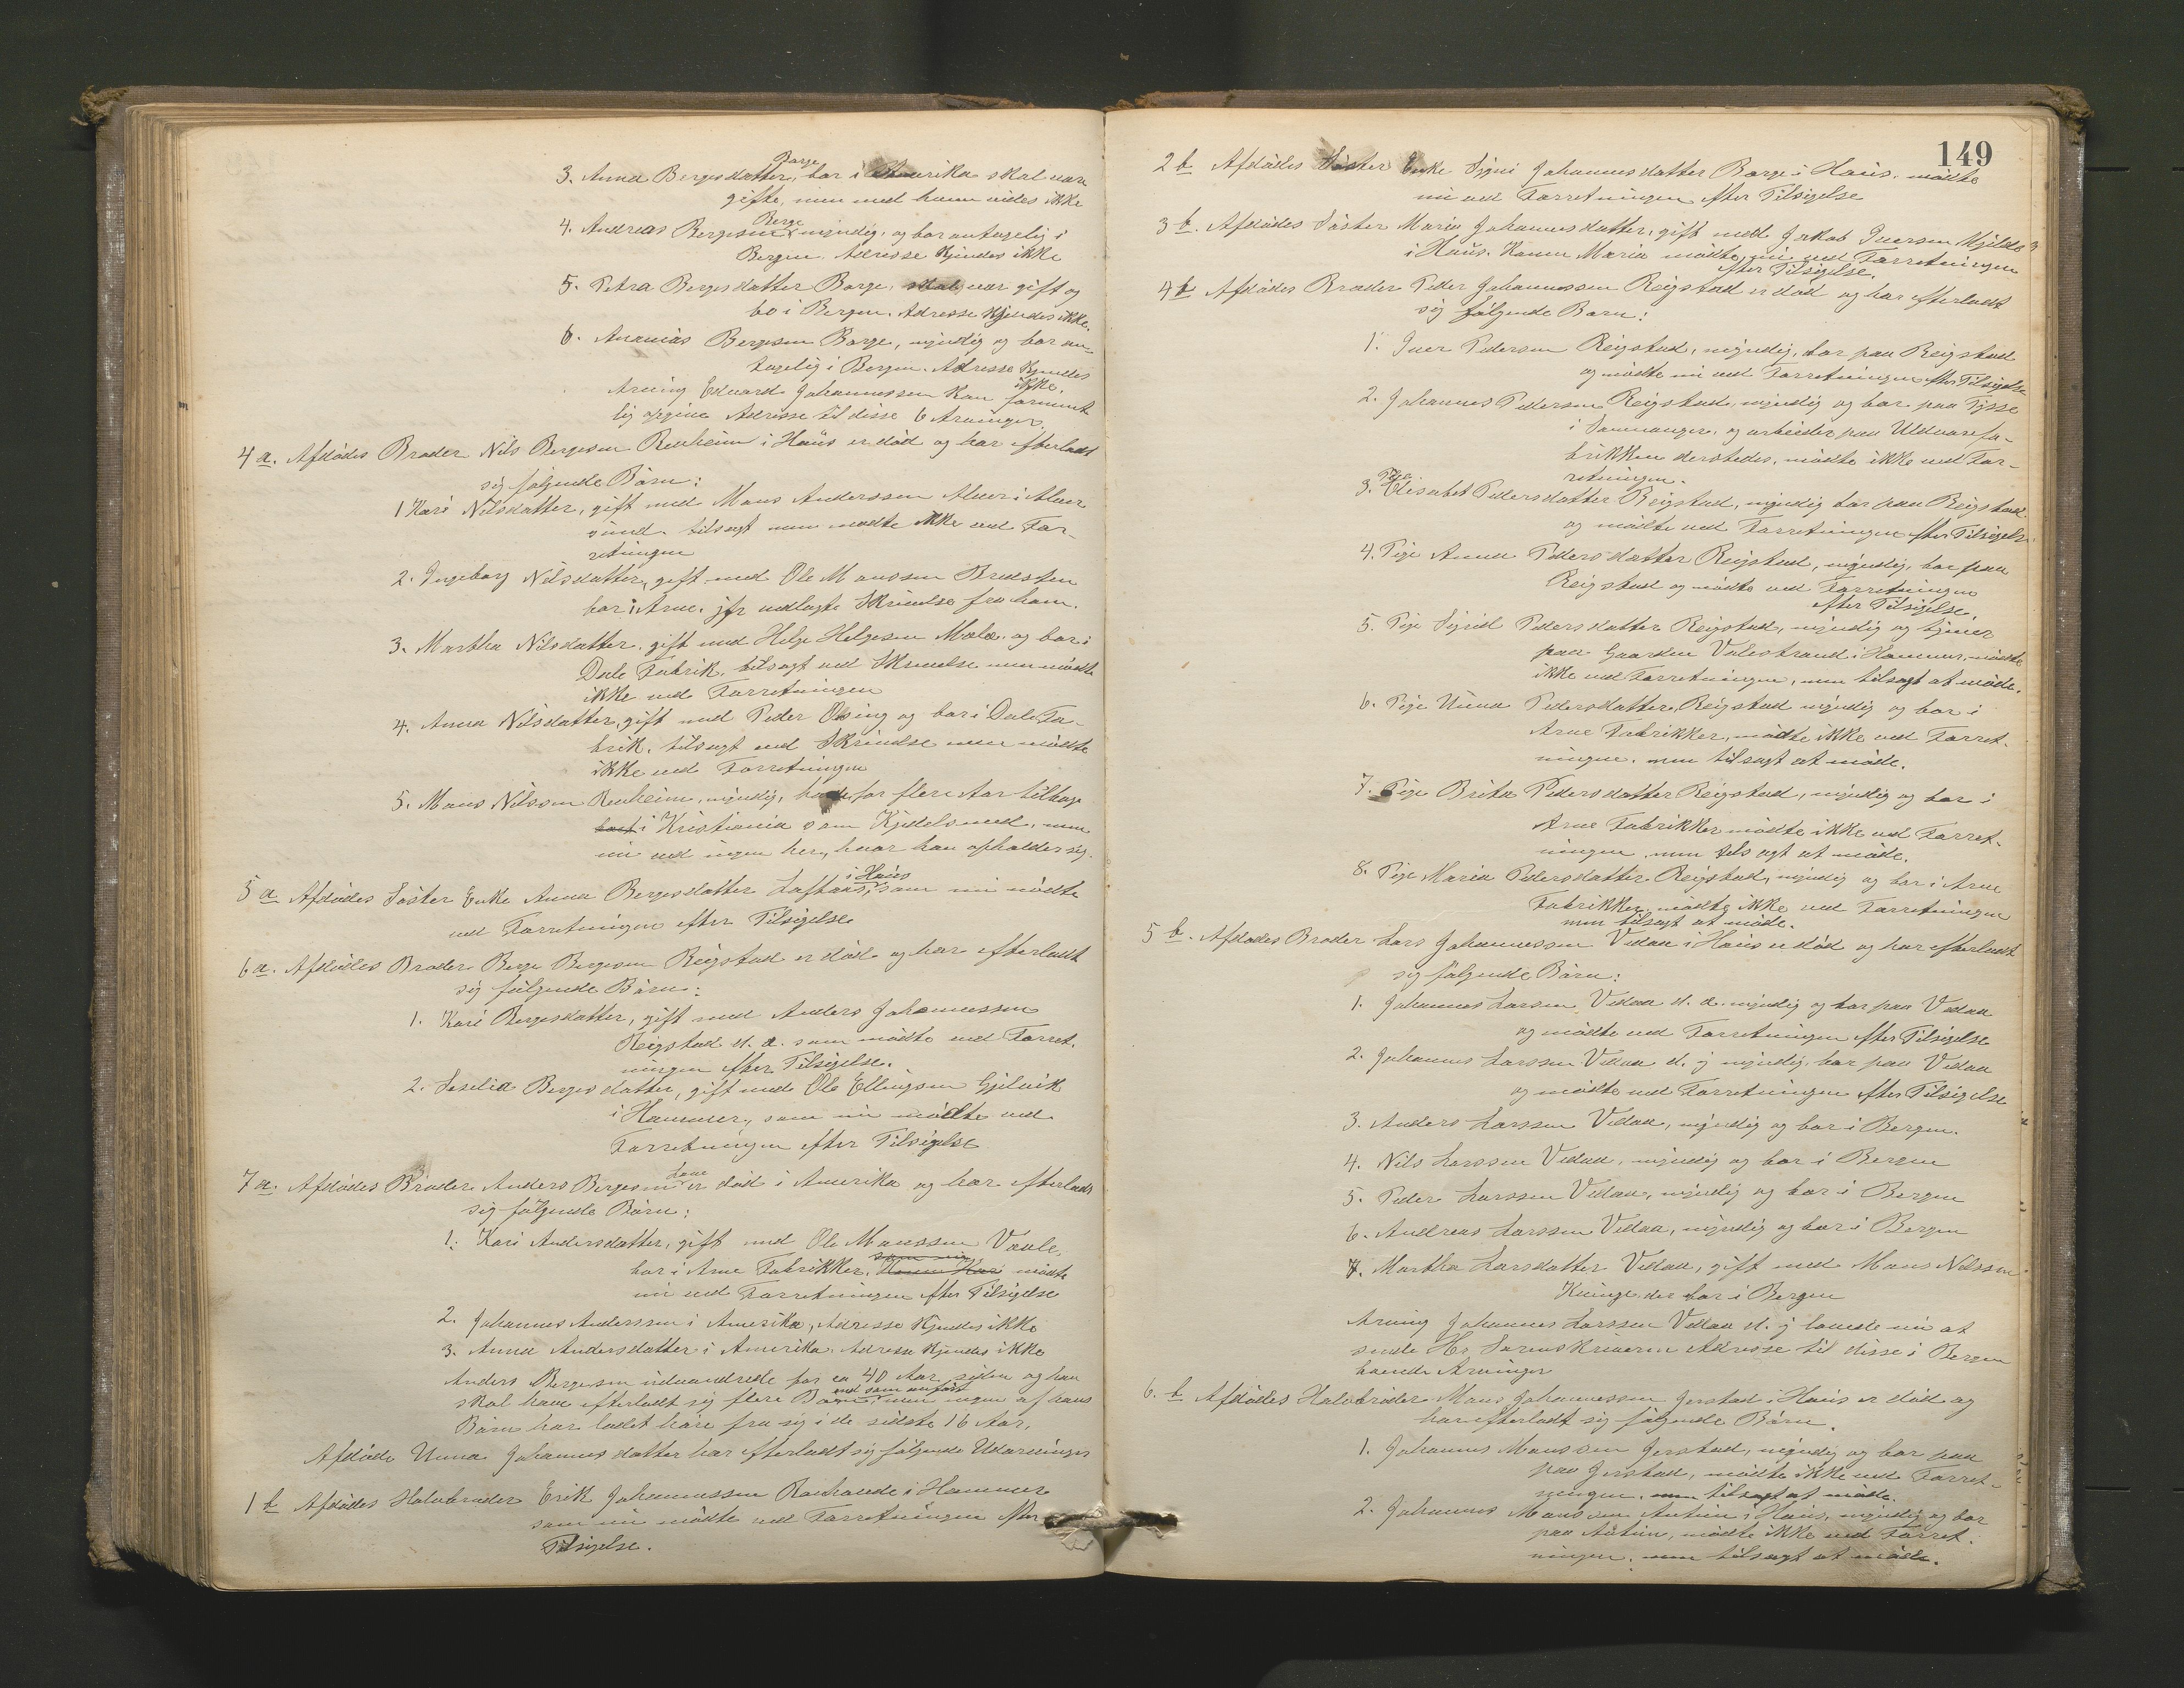 Borge
3. Anna Bergesdatter, bor i Amerika skal være
gifte, men med hvem vides ikke
Berge
4. Andreas Bergesen myndig, og bor antagelig i
Bergen. Adresse kjendes ikke
5. Petra Bergesdatter Borge, skal være gift og
bo i Bergen. Adresse kjendes ikke.
6. Ananias Bergesen Borge, myndig og bor an-
tagelig i Bergen. Adresse kjendes
ikke.
Arving Edvard Johannessen kan forment-
lig opgive Adresse til disse 6 Arvinger.
4 a. Afdødes Broder Nils Bergesen Renheim i Haus er død og har efterladt
sig følgende Børn:
1 Kari Nilsdatter, gift med Mons Anderssen Alver i Alver
sund. tilsagt men mødte ikke ved For-
retningen
2. Ingeborg Nilsdatter, gift med Ole Monssen
bor i Arne. jfr vedlagte Skrivelse fra ham.
3. Martha Nilsdatter, gift med Helge Helgesen Mæle. og bor i
Dale Fabrik. tilsagt ved Skrivelse men mødte
ikke ved Forretningen
4. Anna Nilsdatter, gift med Peder Olsing og bor i Dale Fa-
brik. tilsagt ved Skrivelse men mødte
ikke ved Forretningen
5. Mons Nilssen Renheim, myndig, bode for flere Aar tilbage
boet i Kristiania som Kjedelsmed, men
nu ved ingen her, hvor han opholder sig.
i Haus
5 a. Afdødes Søster Enke Anna Bergesdatter Loftaas, som nu mødte
ved Forretningen efter Tilsigelse
6 a. Afdødes Broder Berge Bergesen Reigstad er død og har efterladt
sig følgende Børn:
1. Kari Bergesdatter, gift med Anders Johannessen
Reigstad d. æ. som mødte ved Forret-
ningen efter Tilsigelse.
2. Seselia Bergesdatter, gift med Ole Ellingsen Gjelvik
i Hammer, som nu mødte ved
Forretningen efter Tilsigelse
Lone
7 a. Afdødes Broder Anders Bergesen er død i Amerika og har efterladt
sig følgende Børn:
1. Kari Andersdatter, gift med Ole Monssen Vaule,
som nu
bor i Arne Fabrikker, Hemn Kari mødte
nu ved Forretningen efter Tilsigelse
2. Johannes Anderssen i Amerika, Adresse kjendes ikke
3. Anna Andersdatter i Amerika. Adresse kjendes ikke
Anders Bergesen udvandrede for ca 40 Aar siden og han
end som anført
skal have efterladt sig flere Børn, men ingen af hans
Børn har ladet høre fra sig i de sidste 16 Aar,
Afdøde Unna Johannesdatter har efterladt sig følgende Udarvinger
1 b Afdødes Halvbroder Erik Johannessen i Hammer
som nu mødte ved Forretningen efter
Tilsigelse.
149
2 b Afdødes Søster Enke Signi Johannesdatter Borge i Haus. mødte
nu ved Forretningen efter Tilsigelse
3 b. Afdødes Søster Maria Johannesdatter, gift med Jakob Iversen Mjelde
i Haus. Konen Maria mødte nu ved Forretningen
efter Tilsigelse.
4 b Afdødes Broder Peder Johannessen Reigstad er død og har efterladt
sig følgende Børn:
1. Iver Pedersen Reigstad, myndig, bor paa Reigstad
og mødte nu ved Forretningen efter Tilsigelse
2. Johannes Pedersen Reigstad, myndig og bor paa Tysse
i Samnanger, og arbeider paa Uldvarefa-
brikken dersteds, mødte ikke ved For-
retningen.
Pige
3. Elisabet Pedersdatter Reigstad, myndig bor paa Reigstad
og mødte ved Forretningen efter Tilsigelse
4. Pige Anna Pedersdatter Reigstad, myndig, bor paa
Reigstad og mødte ved Forretningen
efter Tilsigelse.
5. Pige Sigrid Pedersdatter Reigstad, myndig og tjener
paa Gaarden Valestrand i Hammer, mødte
ikke ved Forretningen, men tilsagt at møde.
6. Pige Unna Pedersdatter Reigstad myndig og bor i
Arne Fabrikker, mødte ikke ved Forret-
ningen. men tilsagt at møde.
7. Pige Brita Pedersdatter Reigstad, myndig og bor i
Arne Fabrikker mødte ikke ved Forret-
ningen, men tilsagt at møde.
8. Pige Maria Pedersdatter Reigstad, myndig og bor i Arne
Fabrikker, mødte ikke ved Forretningen
men tilsagt at møde.
5 b. Afdødes Broder Lars Johannessen Vedaa i Haus er død og har efterladt
sig følgende Børn:
1. Johannes Larssen Vedaa d. æ. myndig og bor paa Vedaa
og mødte ved Forretningen efter Tilsigelse
2. Johannes Larssen Vedaa d. y myndig, bor paa Vedaa
og mødte ved Forretningen efter Tilsigelse
3. Anders Larssen Vedaa, myndig og bor i Bergen.
4. Nils Larssen Vedaa, myndig og bor i Bergen
5. Peder Larssen Vedaa, myndig og bor i Bergen
6. Andreas Larssen Vedaa, myndig og bor i Bergen
7. Martha Larsdatter Vedaa, gift med Mons Nilssen
Kvinge der bor i Bergen
Arving Johannes Larssen Vedaa d. y lovede nu at
sende Hr. Sorenskriveren Adresse til disse i Bergen
boende Arvinger
6. b Afdødes Halvbroder Mons Johannessen Jerstad i Haus er død og
har efterladt sig følgende Børn.
1. Johannes Monssen Jerstad, myndig og bor paa
paa Jerstad, mødte ikke ved Forret-
ningen. men tilsagt at møde.
2. Johannes Monssen i Haus, myndig og bor
paa mødte ikke ved Forret-
ningen. men tilsagt at møde.